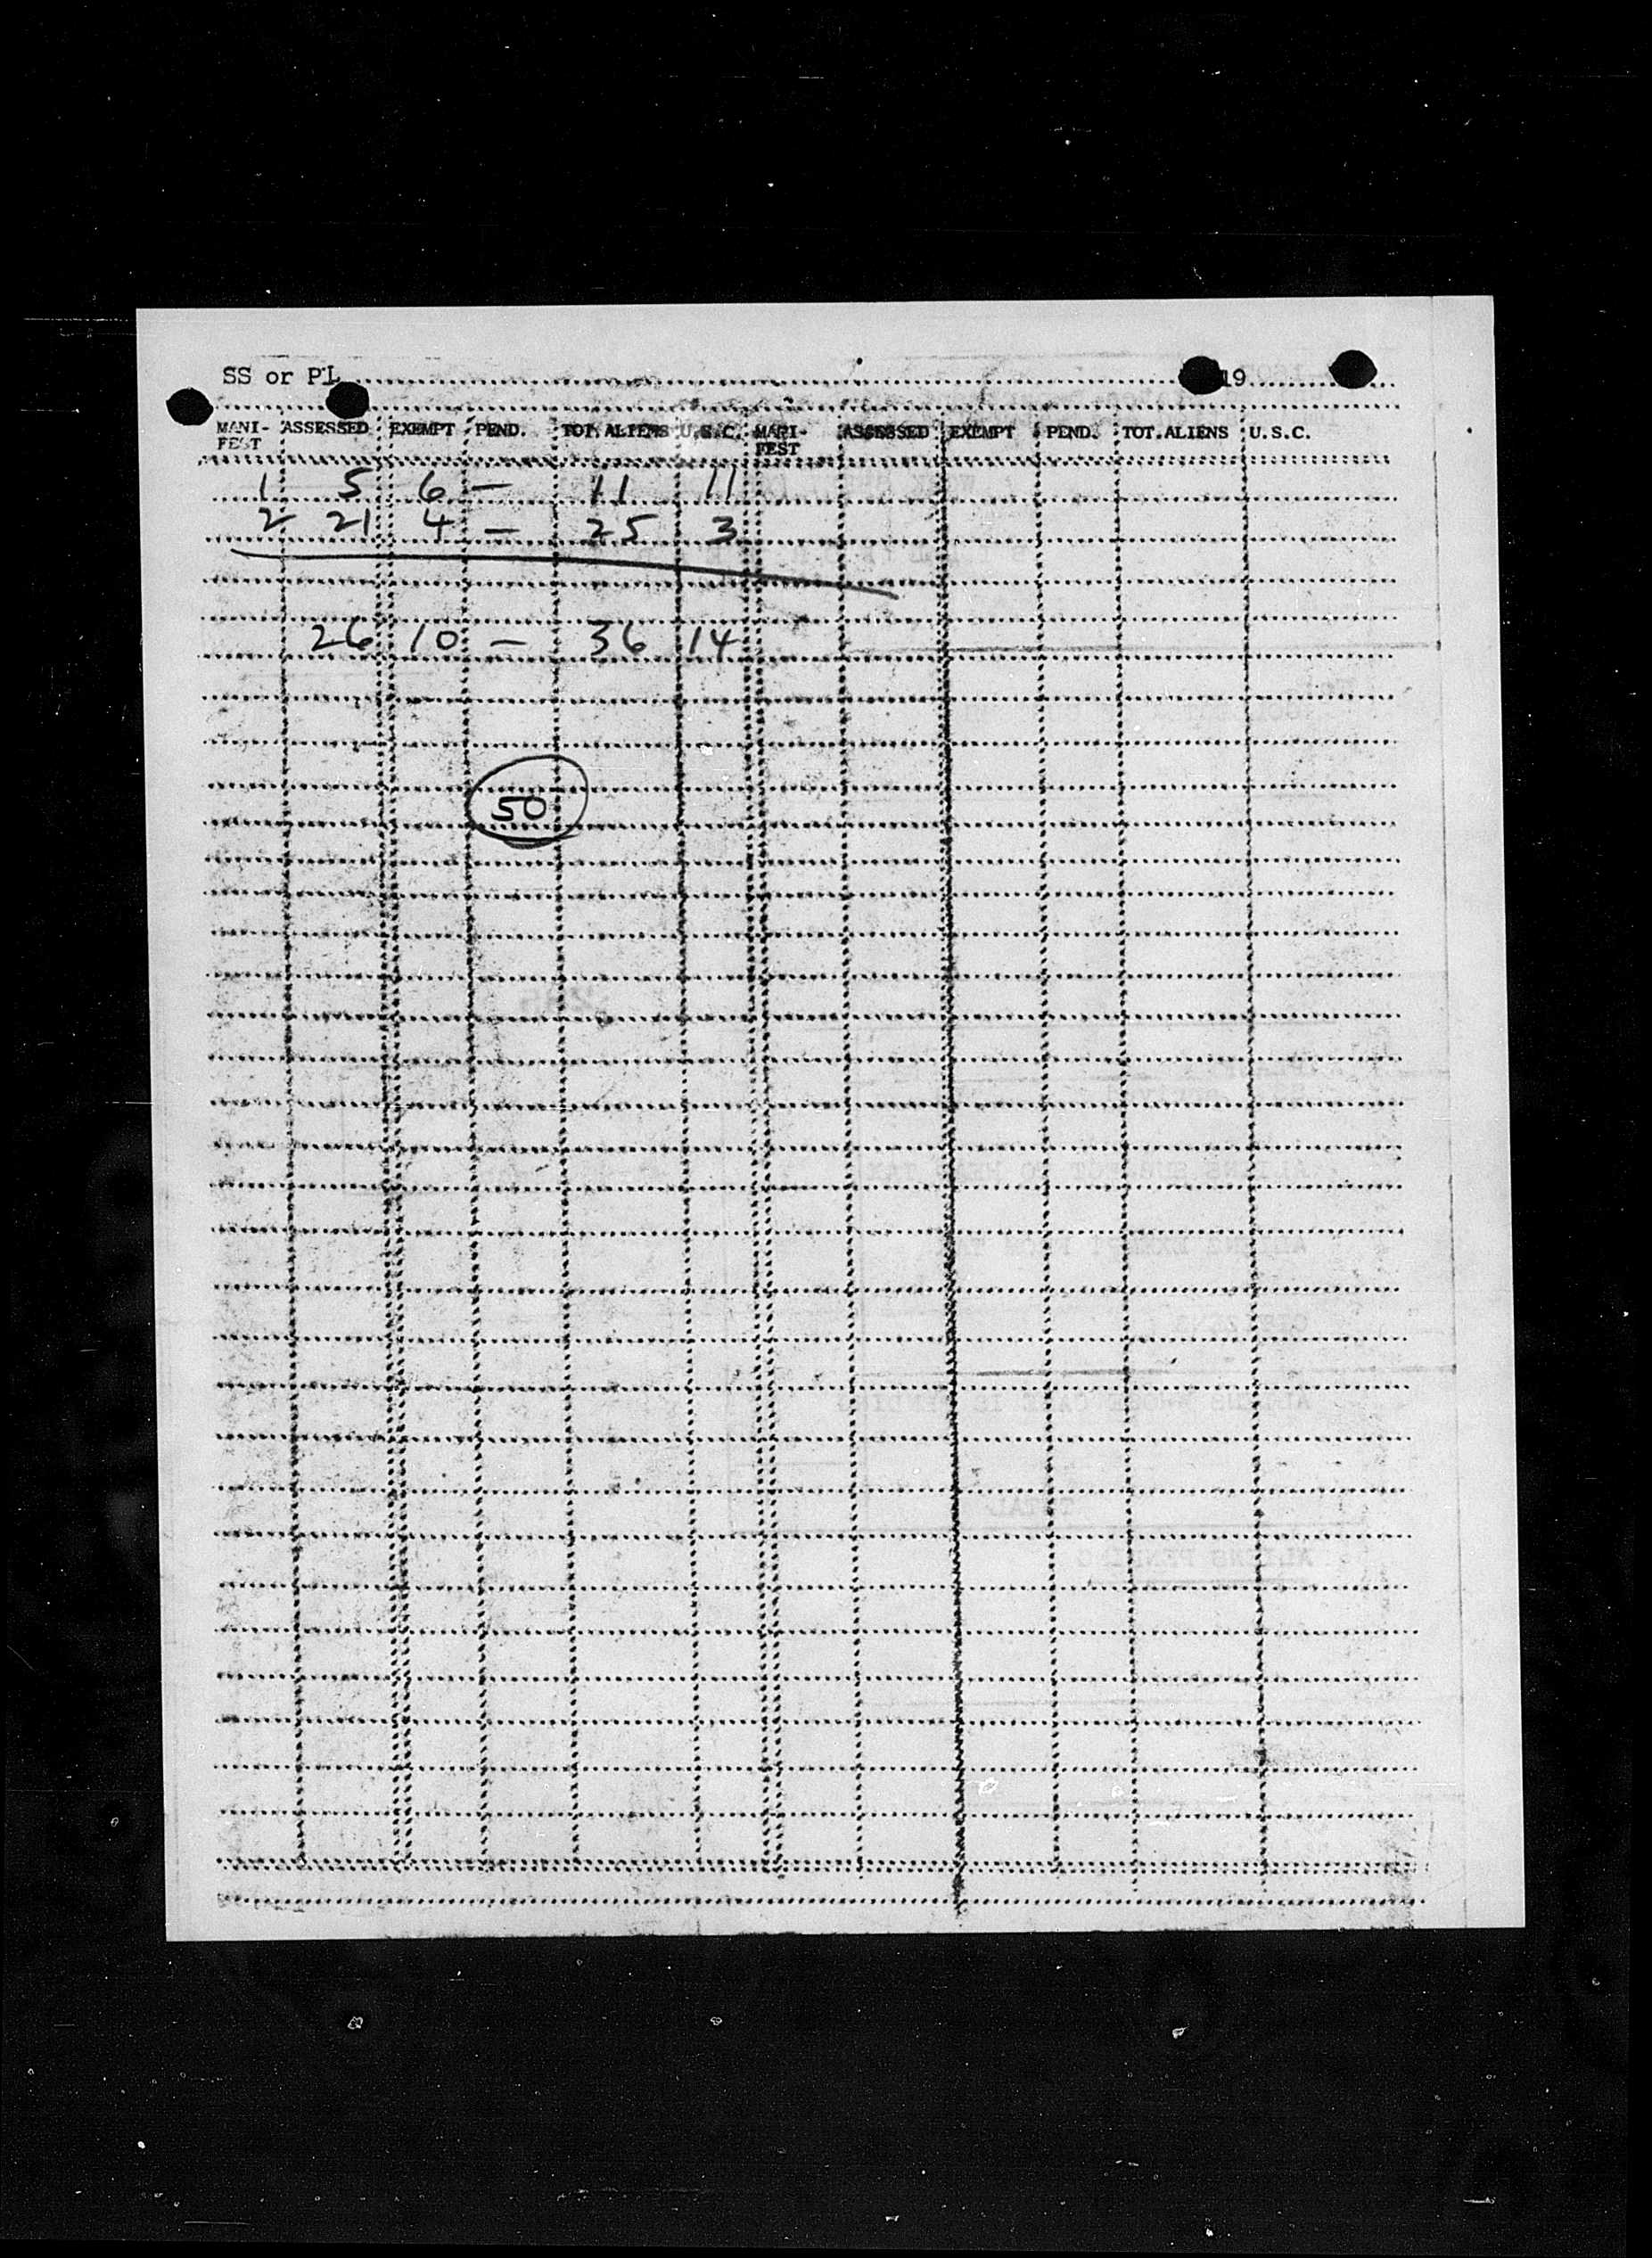 SS or PL 19
MANI- ASSESSED EXEMPT PEND. TOT. ALIENS U.S.C. MANI- ASSESSED EXEMPT PEND. TOT.ALIENS U.S.C.
FEST FEST
1 5 6 — 11 11
2 21 4 — 25 3
26 10 — 36 14
50